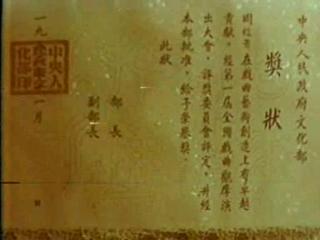 中央人民政府文化部
獎狀
周信芳在戲曲藝術創造上有卓越
貢献，經第一届全國戲曲觀摩演
出大會，評獎委員會評定，并經
本部批准，給予榮譽獎。
此狀
部長
副部長
一九
一月
中央人
化部印